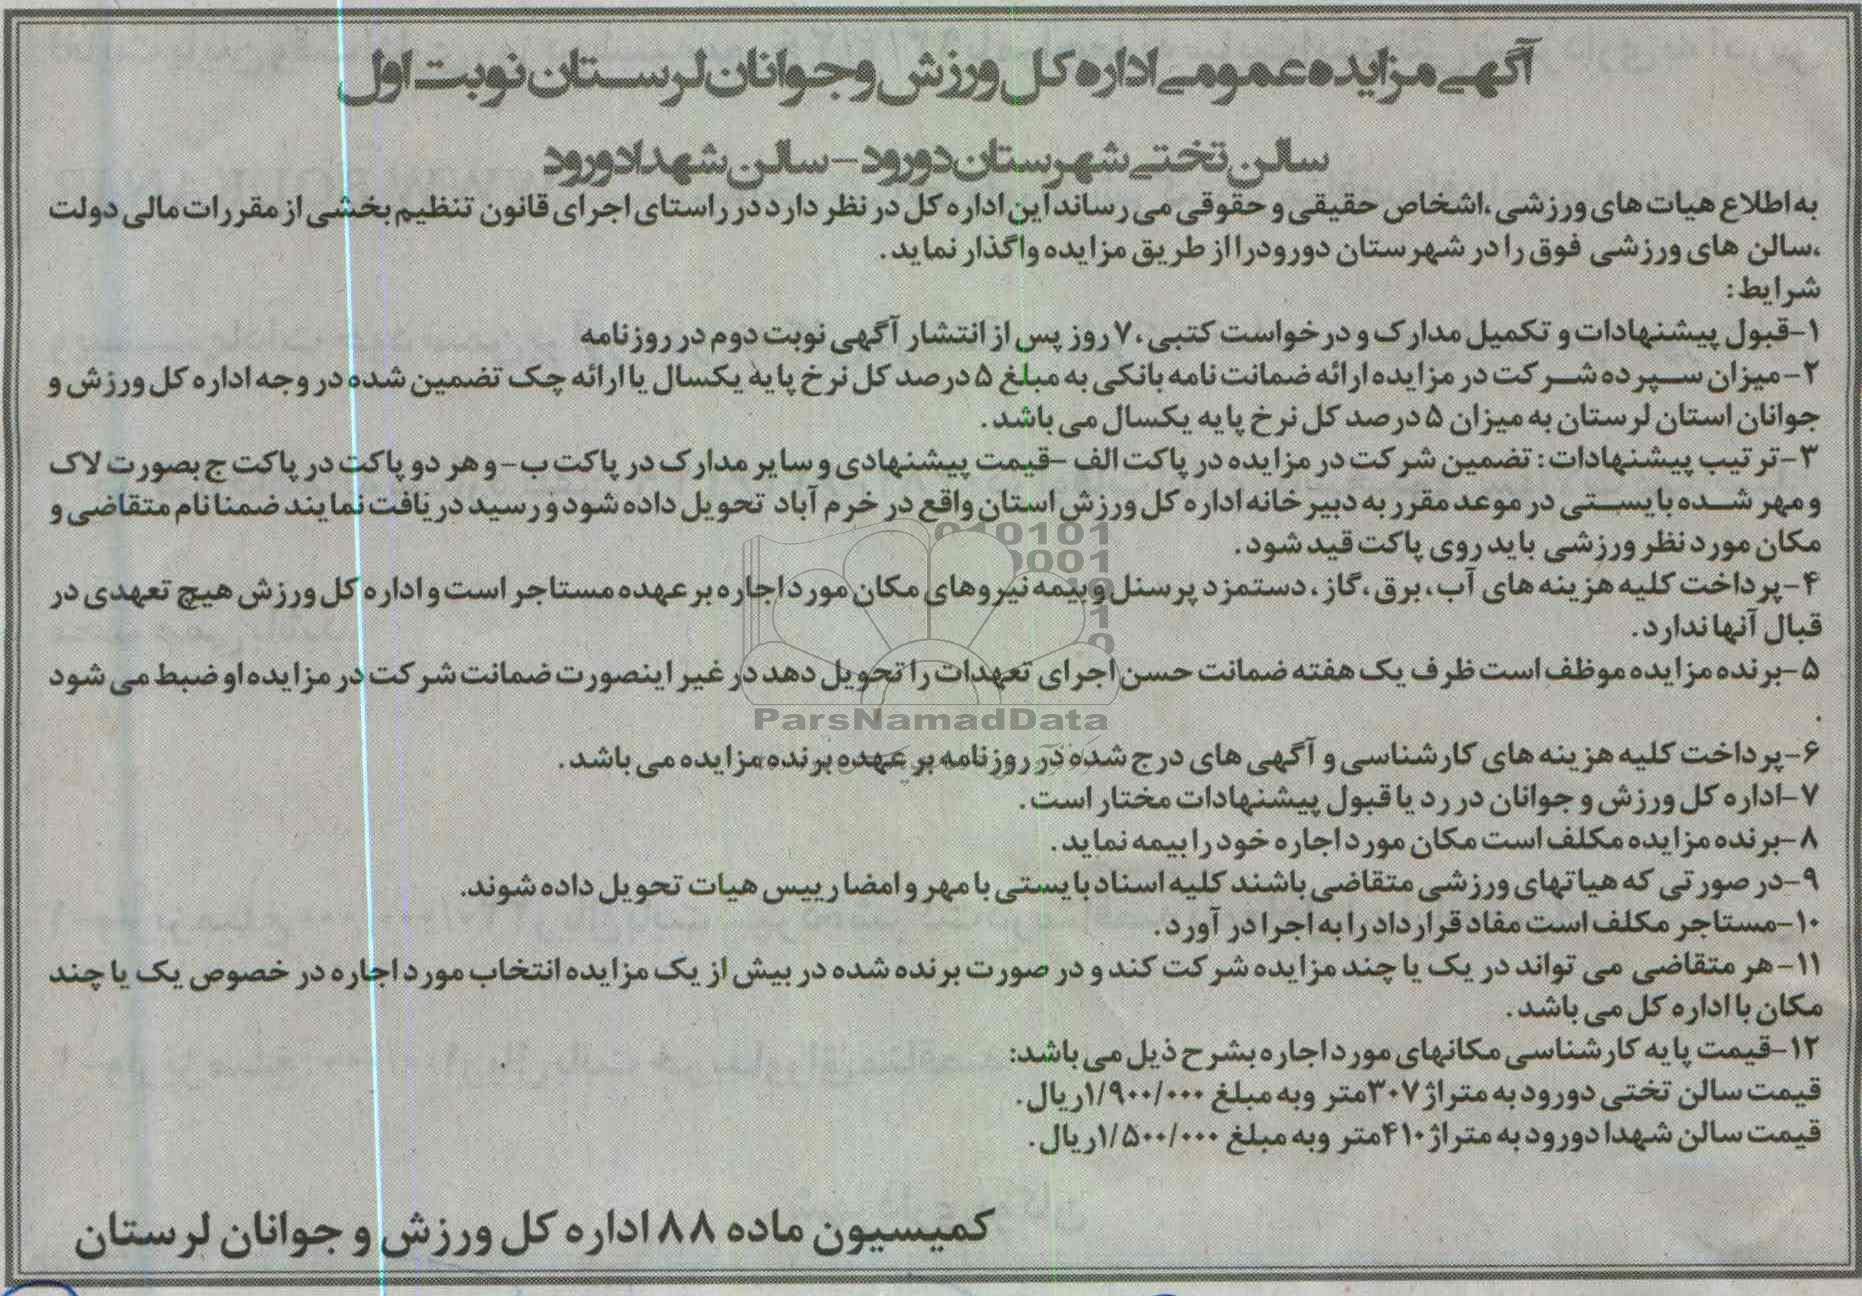 آگهی مزایده عمومی اداره کل ورزش و جوانان لرستان نوبت اول
سالن تختی شهرستان دورود - سالن شهدا دورود
به اطلاع هیات های ورزشی ،اشخاص حقیقی و حقوقی می رساند این اداره کل در نظر دارد در راستای اجرای قانون تنظیم بخشی از مقررات مالی دولت
،سالن های ورزشی فوق را در شهرستان دورود را از طریق مزایده واگذار نماید.
شرایط:
۱-قبول پیشنهادات و تکمیل مدارک و درخواست کتبی ، ۷ روز پس از انتشار آگهی نوبت دوم در روزنامه
۲-میزان سپرده شرکت در مزایده ارائه ضمانت نامه بانکی به مبلغ ۵ درصد کل نرخ پایه یکسال یا ارائه چک تضمین شده در وجه اداره کل ورزش و
جوانان استان لرستان به میزان ۵ درصد کل نرخ پایه یکسال می باشد.
۳-ترتیب پیشنهادات: تضمین شرکت در مزایده در پاکت الف -قیمت پیشنهادی و سایر مدارک در پاکت ب- و هر دو پاکت در پاکت ج بصورت لاک
و مهر شده بایستی در موعد مقرر به دبیرخانه اداره کل ورزش استان واقع در خرم آباد تحویل داده شود و رسید دریافت نمایند ضمنا نام متقاضی و
مکان مورد نظر ورزشی باید روی پاکت قید شود.
۴-پرداخت کلیه هزینه های آب، برق، گاز، دستمزد پرسنل و بیمه نیروهای مکان مورد اجاره بر عهده مستاجر است و اداره کل ورزش هیچ تعهدی در
قبال آنها ندارد.
۵-برنده مزایده موظف است ظرف یک هفته ضمانت حسن اجرای تعهدات را تحویل دهد در غیر اینصورت ضمانت شرکت در مزایده او ضبط می شود
.
۶-پرداخت کلیه هزینه های کارشناسی و آگهی های درج شده در روزنامه بر عهده برنده مزایده می باشد.
۷-اداره کل ورزش و جوانان در رد یا قبول پیشنهادات مختار است.
۸-برنده مزایده مکلف است مکان مورد اجاره خود را بیمه نماید.
۹-در صورتی که هیاتهای ورزشی متقاضی باشند کلیه اسناد بایستی با مهر و امضا رییس هیات تحویل داده شوند.
۱۰-مستاجر مکلف است مفاد قرارداد را به اجرا در آورد.
۱۱-هر متقاضی می تواند در یک یا چند مزایده شرکت کند و در صورت برنده شده در بیش از یک مزایده انتخاب مورد اجاره در خصوص یک یا چند
مکان با اداره کل می باشد.
۱۲-قیمت پایه کارشناسی مکانهای مورد اجاره بشرح ذیل می باشد:
قیمت سالن تختی دورود به متراژ ۳۰۷متر وبه مبلغ ۱/۹۰۰/۰۰۰ریال.
قیمت سالن شهدا دورود به متراژ ۴۱۰متر وبه مبلغ ۱/۵۰۰/۰۰۰ریال.
کمیسیون ماده ۸۸ اداره کل ورزش و جوانان لرستان
ParsNamadData